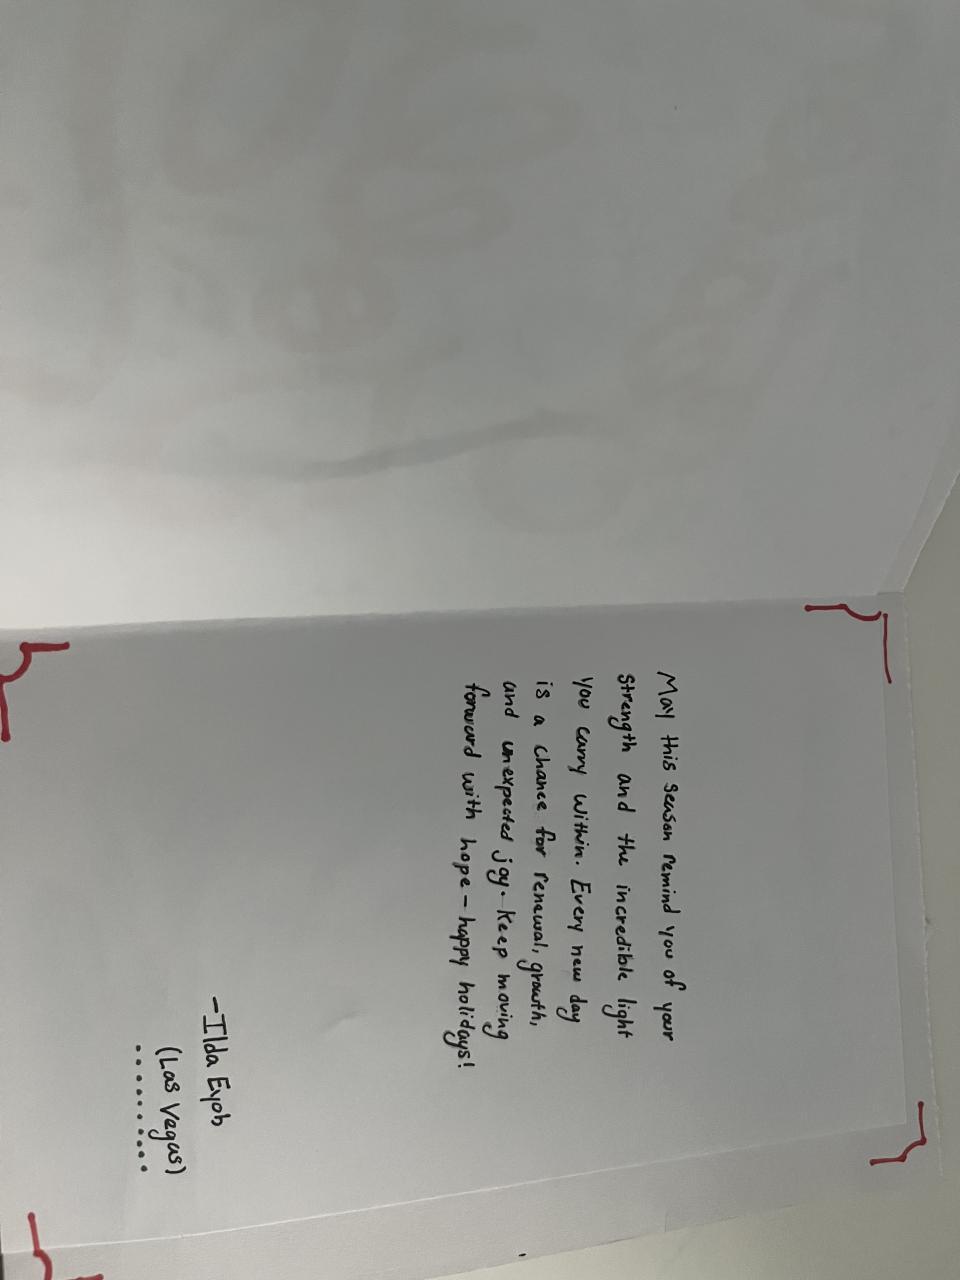 May this season remind you of your
strength and the incredible light
you carry within. Every new day
is a chance for renewal, growth,
and unexpected joy. Keep moving
forward with hope - happy holidays!
- Ilda Eyob
(Las Vegas)